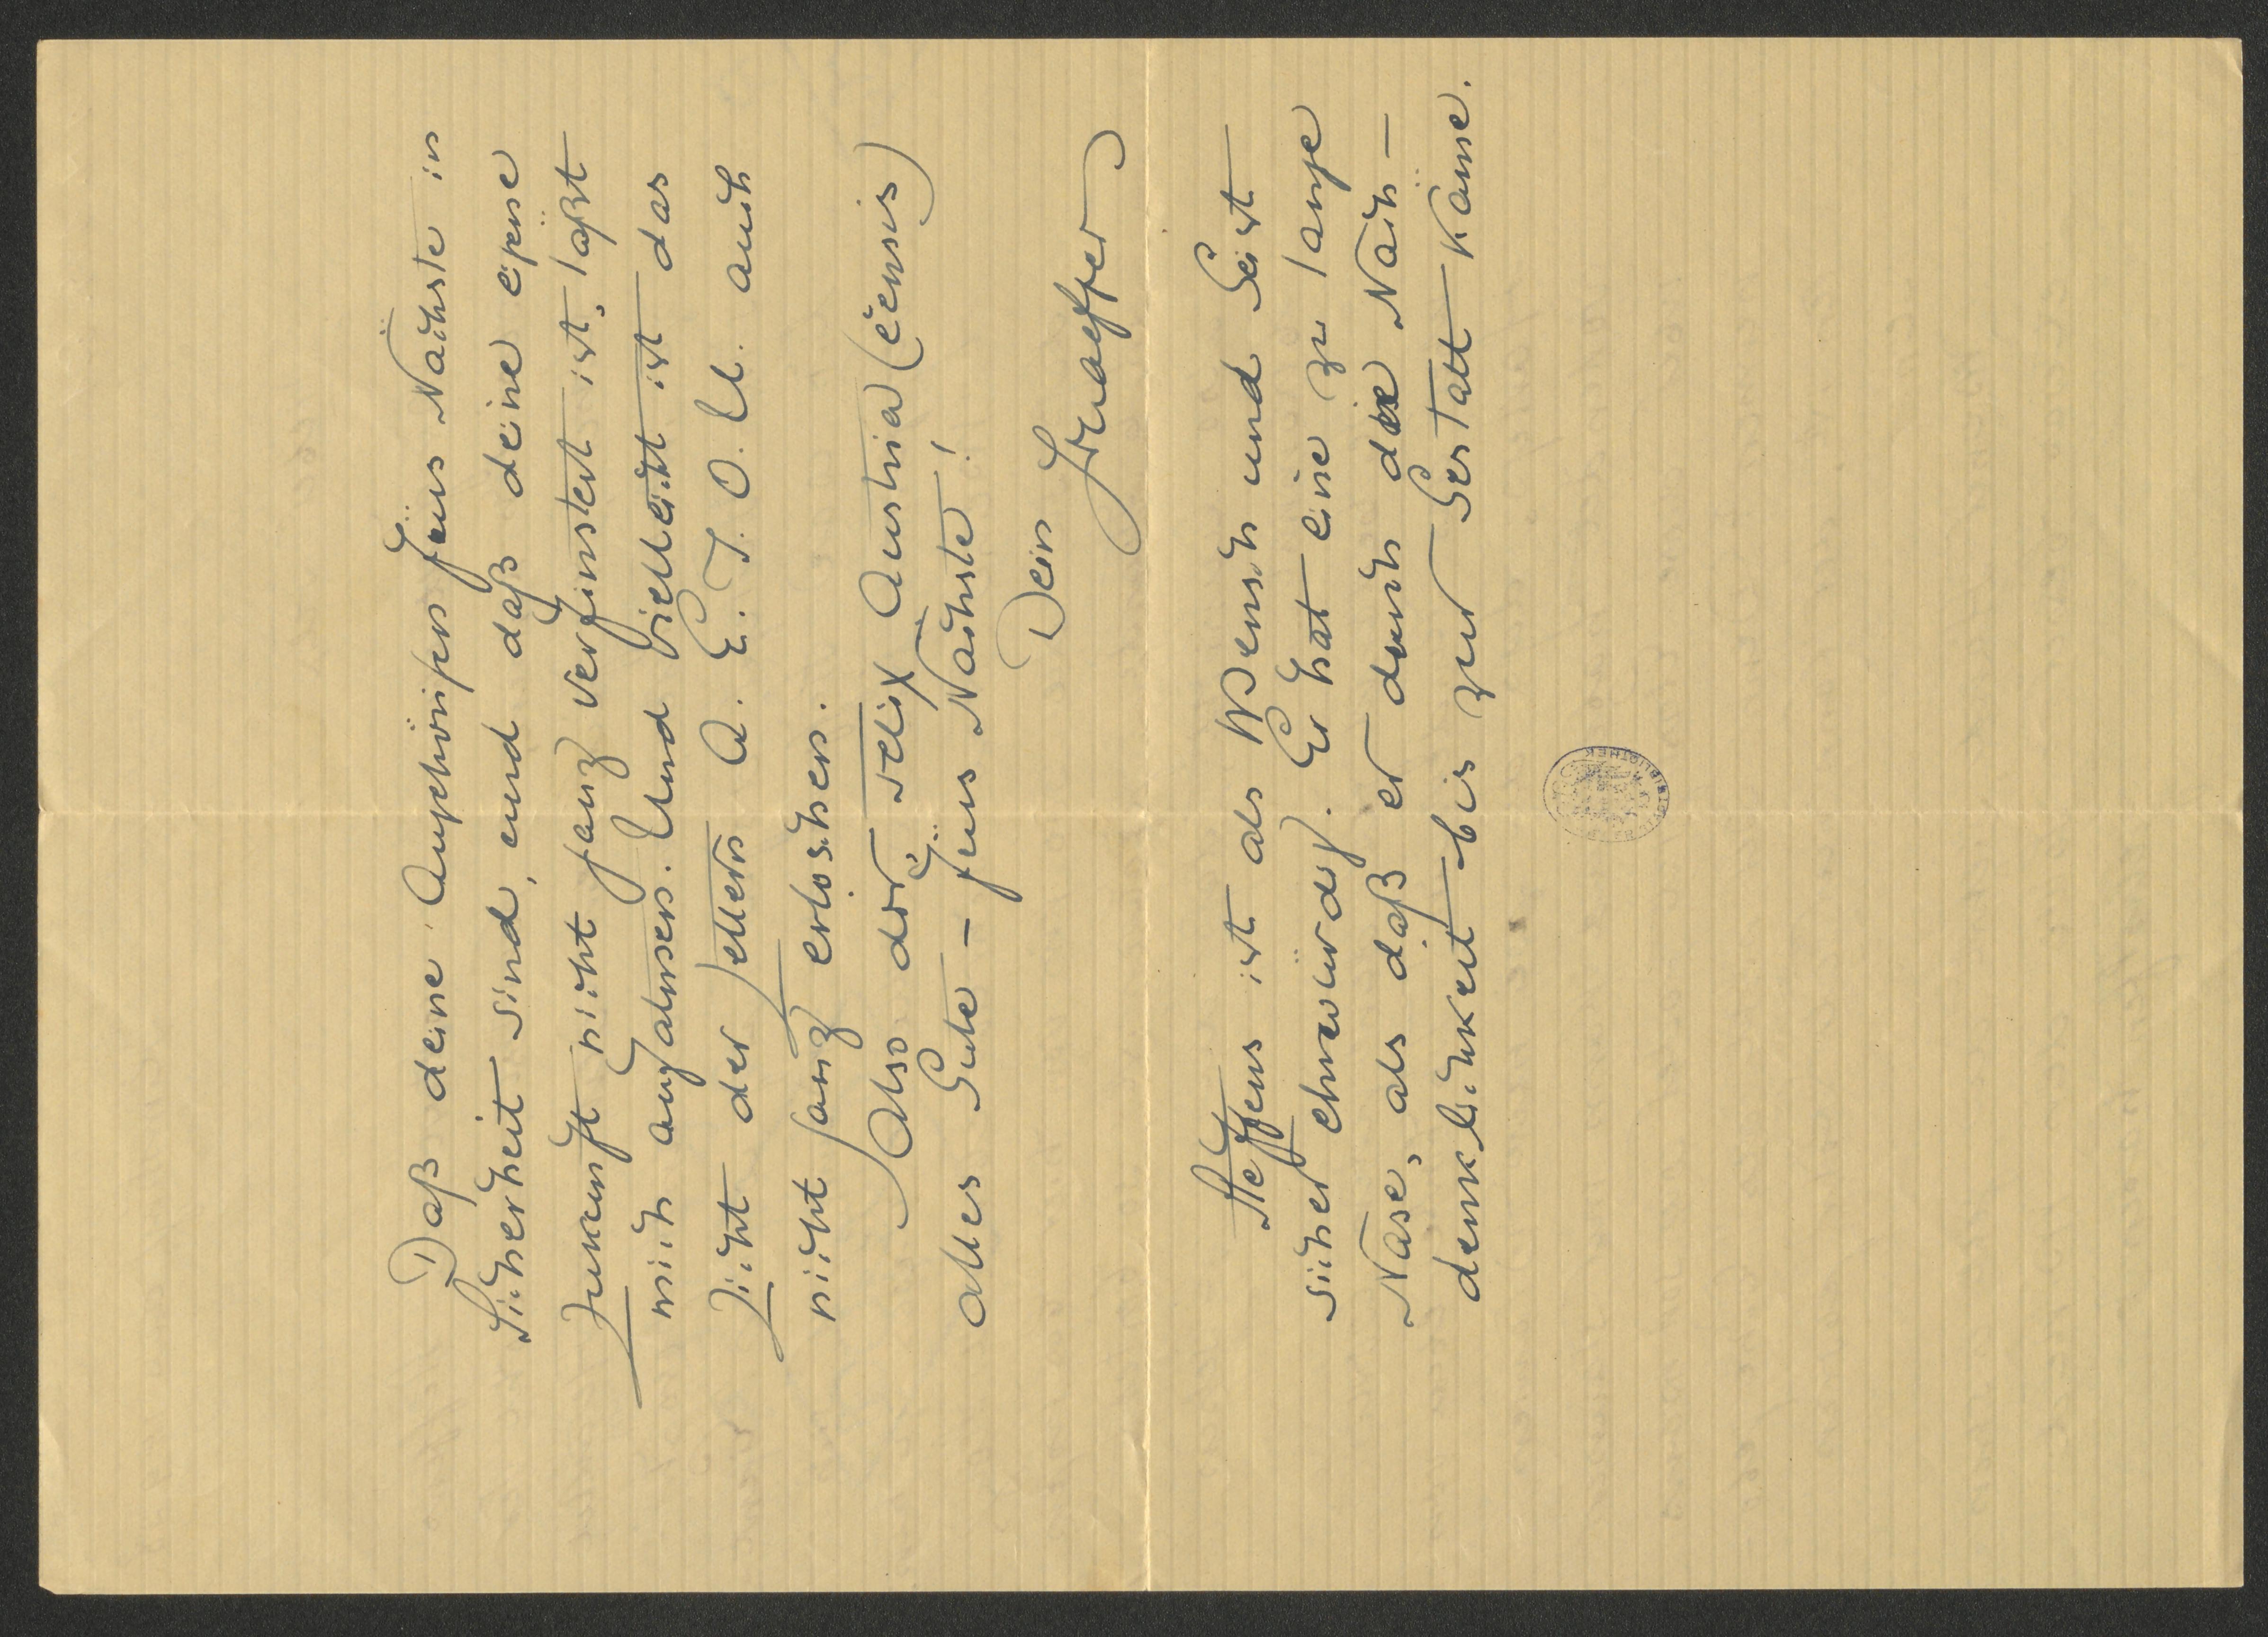 Daß deine Angehörigen fürs Nächste in
Sicherheit sind, und daß deine eigene
Zukunft nicht ganz verfinstert ist, läßt
mich aufatmen. Und vielleicht ist das
Licht der Sellern A. E. I. O. U. auch
nicht ganz erloschen.
Also dir, felix Austria(censis)
alles Gute – fürs Nächste!
Dein Schaeffer
Steffens ist als Mensch und Geist
sicher ehrwürdig. Er hat eine zu lange
Nase, als daß er durch die Näch-
denklichkeit bis zur Gestalt käme.